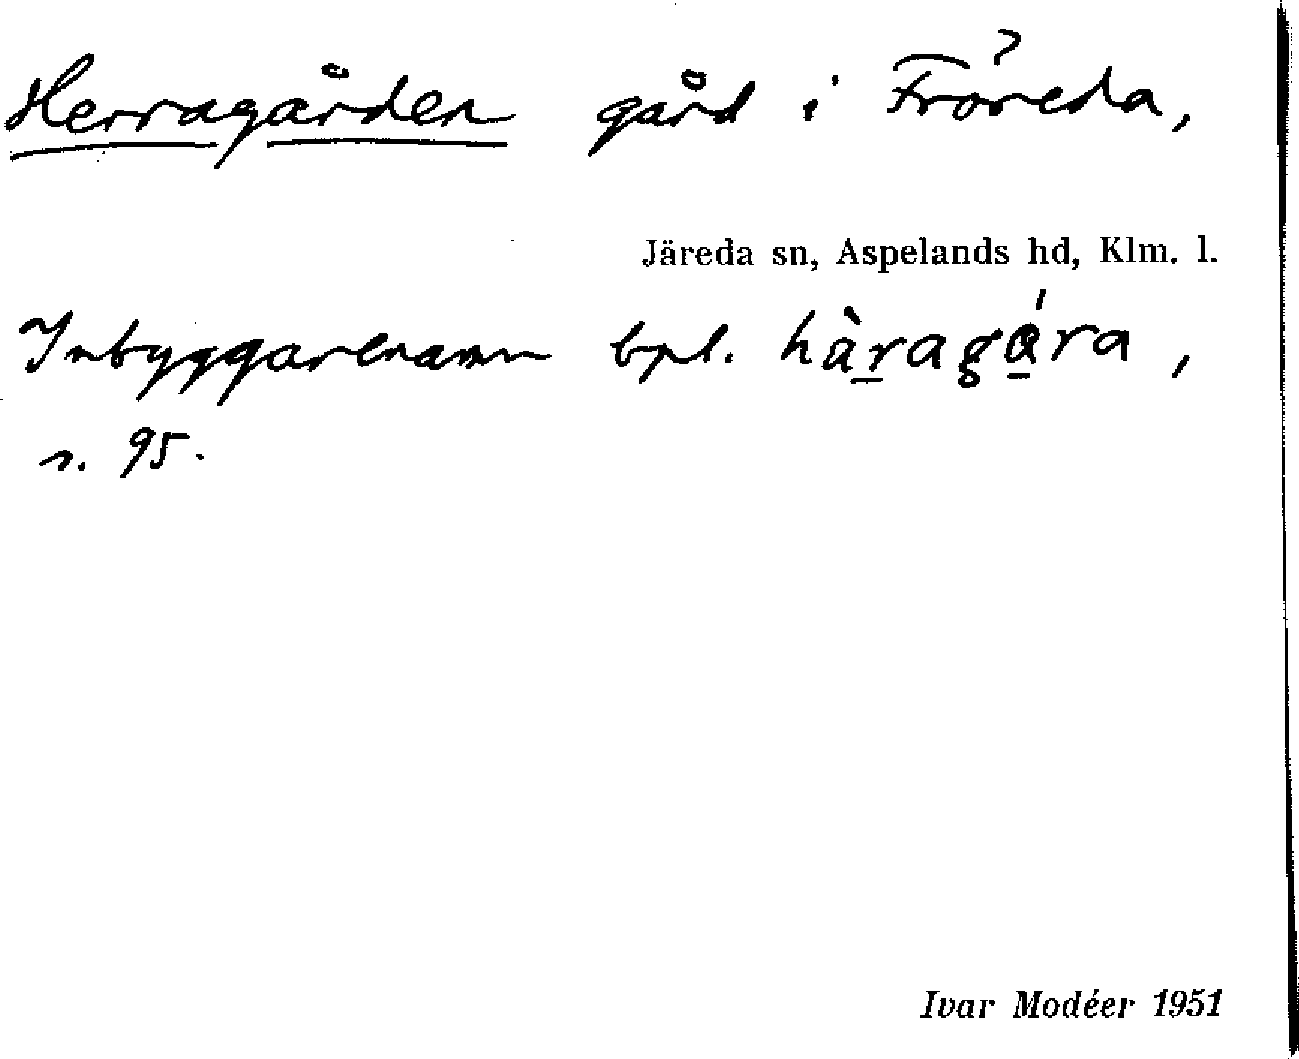 Herragården gård i Fröreda,
Järeda sn, Aspelands hd, Klm. l.
Inbyggarenamn bpl. hàr̲agá̲ra,
s. 95.
Ivar Modéer 1951